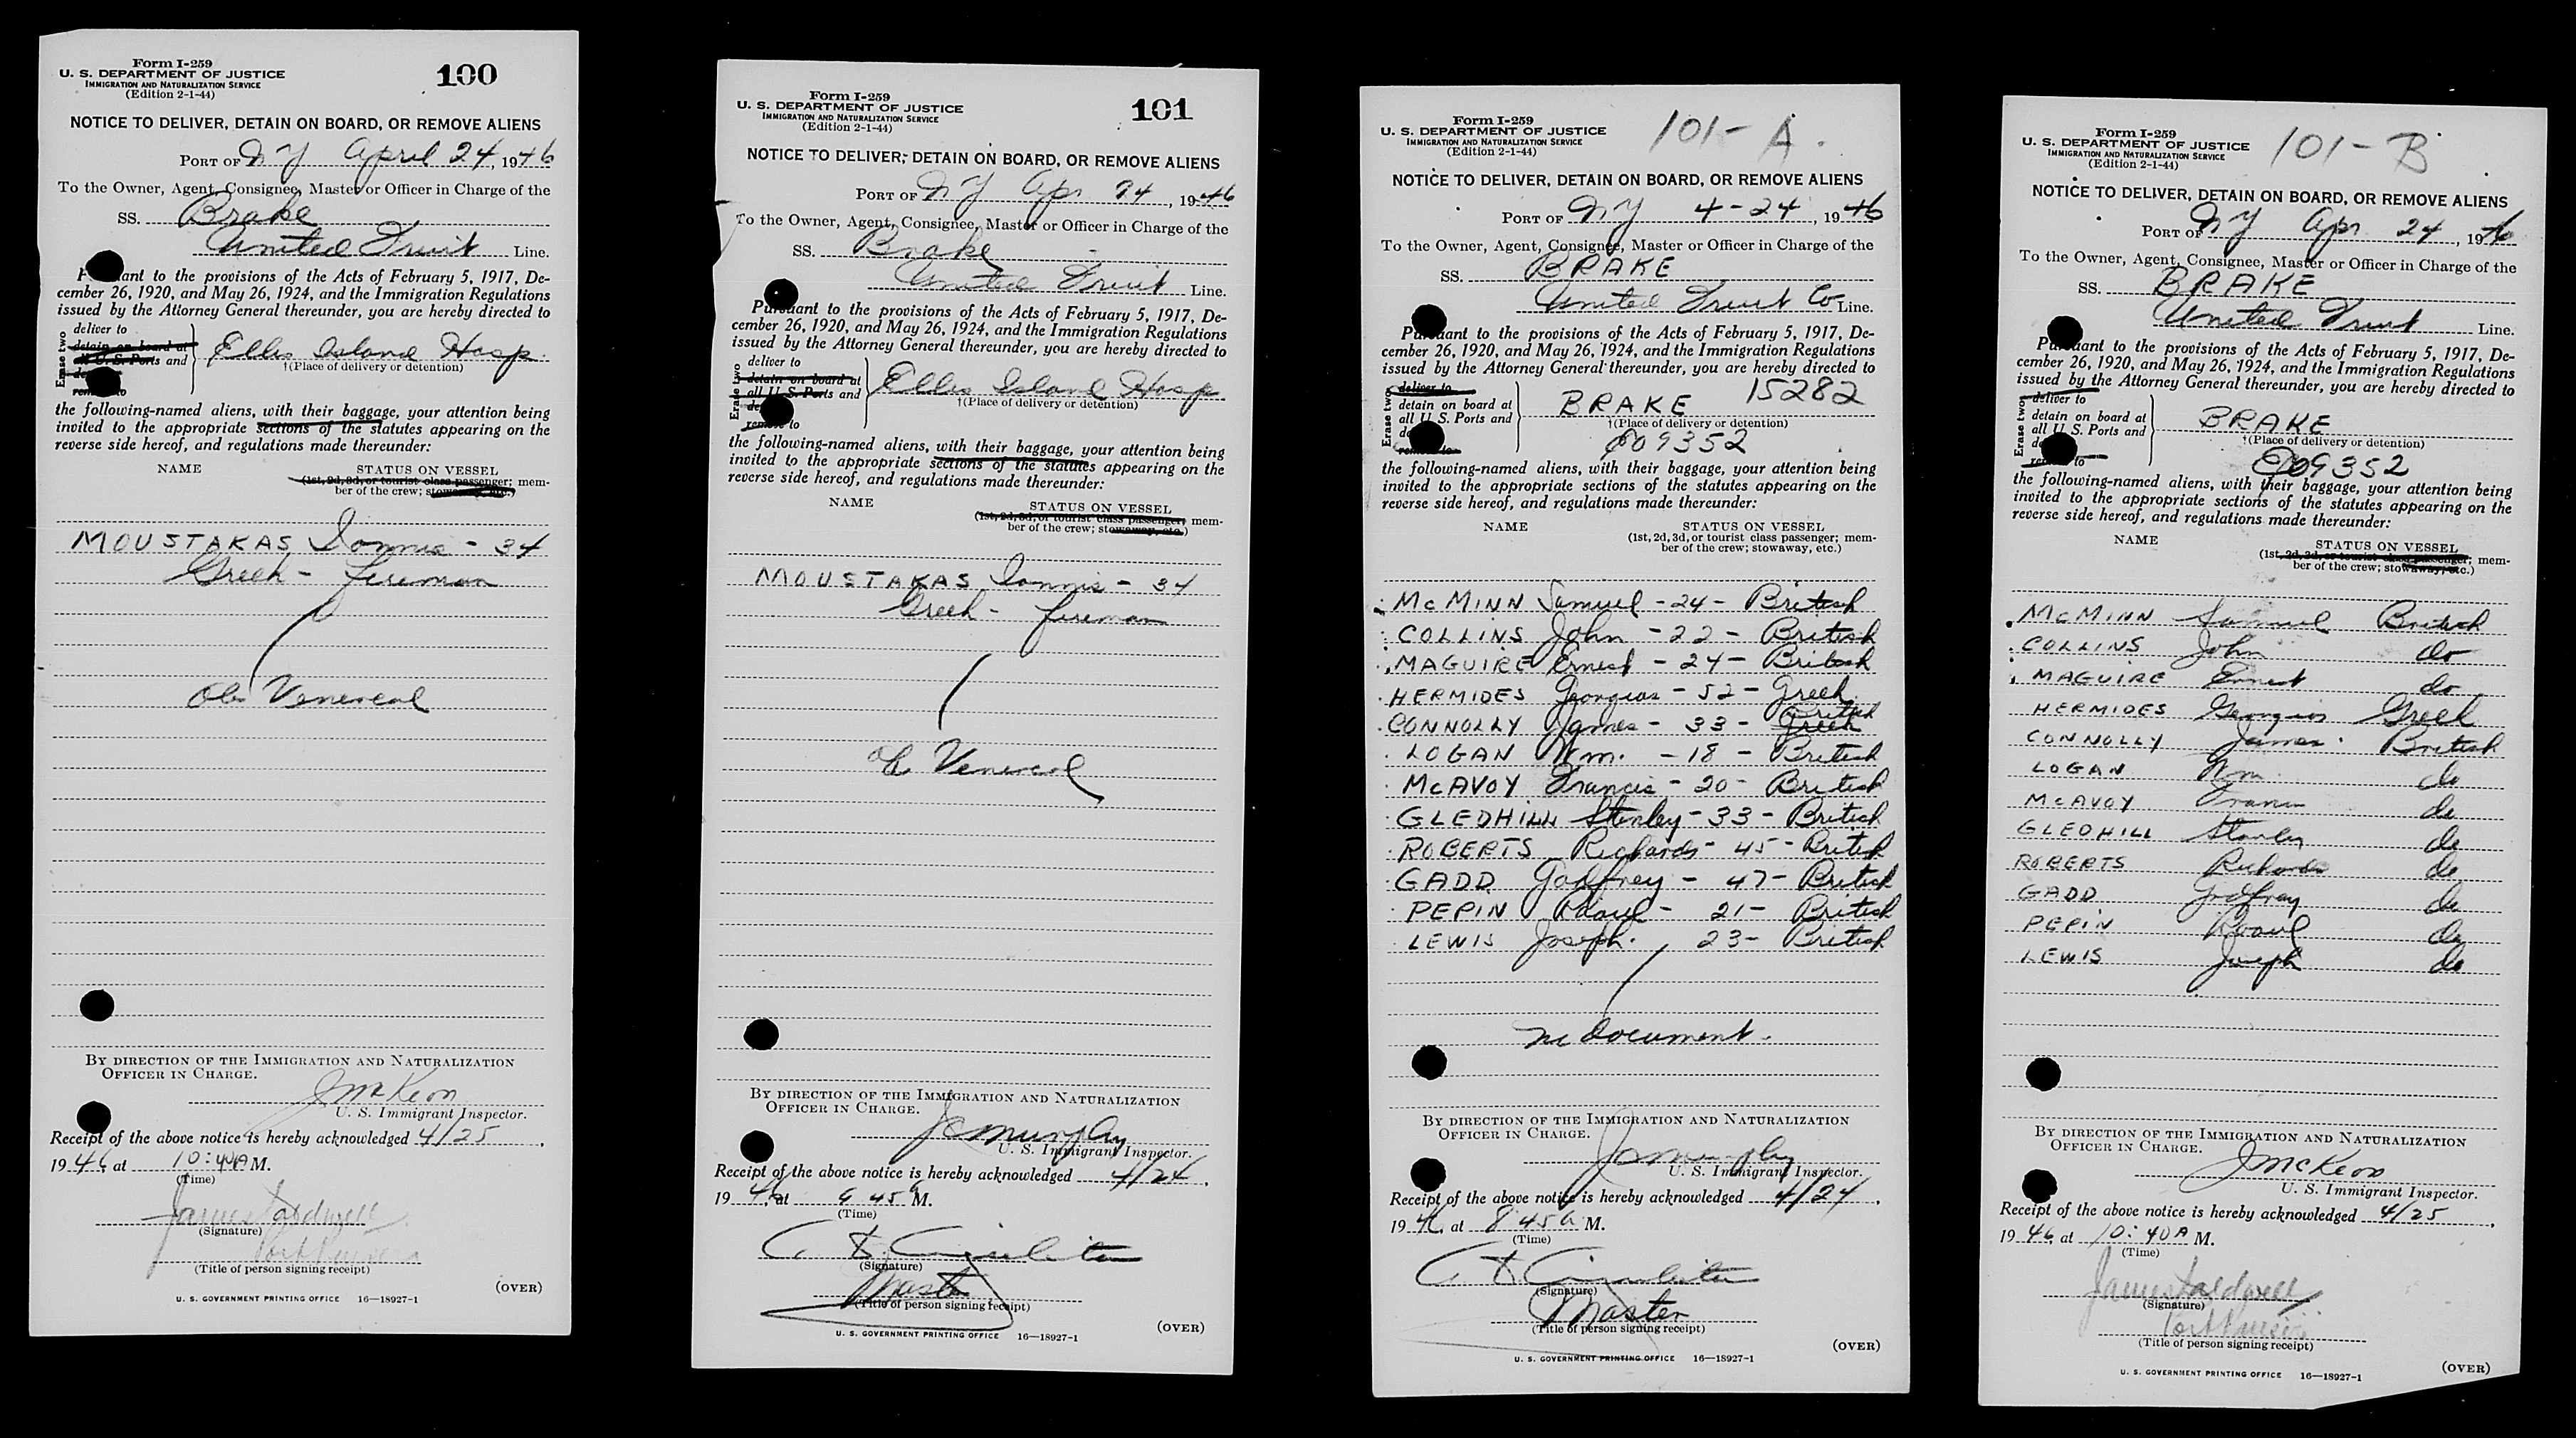 Form I-259
U. S. DEPARTMENT OF JUSTICE
IMMIGRATION AND NATURALIZATION SERVICE
(Edition 2-1-44)
100
NOTICE TO DELIVER, DETAIN ON BOARD, OR REMOVE ALIENS
PORT OF NY April 24, 1946
To the Owner, Agent, Consignee, Master or Officer in Charge of the
SS. Brake
United Fruit Line.
ant to the provisions of the Acts of February 5, 1917, De-
cember 26, 1920, and May 26, 1924, and the Immigration Regulations
issued by the Attorney General thereunder, you are hereby directed to
Erase two
deliver to
detain on board at
all U. S. Ports and
Ellis Island Hosp.
†(Place of delivery or detention)
the following-named aliens, with their baggage, your attention being
invited to the appropriate sections of the statutes appearing on the
reverse side hereof, and regulations made thereunder:
NAME STATUS ON VESSEL
(1st, 2d, 3d, or tourist class passenger; mem-
ber of the crew; stowaway, etc.)
MOUSTAKAS Ioannis - 34
Greek - fireman
Obs Venereal
BY DIRECTION OF THE IMMIGRATION AND NATURALIZATION
OFFICER IN CHARGE.
J McKeon
U. S. Immigrant Inspector.
Receipt of the above notice is hereby acknowledged 4/25,
1946, at 10:40 A M.
(Time)
James Caldwell
(Signature)
(Title of person signing receipt)
(OVER)
U. S. GOVERNMENT PRINTING OFFICE 16—18927-1
Form I-259
U. S. DEPARTMENT OF JUSTICE
IMMIGRATION AND NATURALIZATION SERVICE
(Edition 2-1-44)
101
NOTICE TO DELIVER, DETAIN ON BOARD, OR REMOVE ALIENS
PORT OF NY Apr 24, 1946
To the Owner, Agent, Consignee, Master or Officer in Charge of the
SS. Brake
United Fruit Line.
Pursuant to the provisions of the Acts of February 5, 1917, De-
cember 26, 1920, and May 26, 1924, and the Immigration Regulations
issued by the Attorney General thereunder, you are hereby directed to
Erase two
deliver to
detain on board at
all U. S. Ports and
remove to
Ellis Island Hosp
†(Place of delivery or detention)
the following-named aliens, with their baggage, your attention being
invited to the appropriate sections of the statutes appearing on the
reverse side hereof, and regulations made thereunder:
NAME STATUS ON VESSEL
(1st, 2d, 3d, or tourist class passenger; mem-
ber of the crew; stowaway, etc.)
MOUSTAKAS Ioannis - 34
Greek - fireman
Venereal
BY DIRECTION OF THE IMMIGRATION AND NATURALIZATION
OFFICER IN CHARGE.
Murphy
U. S. Immigrant Inspector.
Receipt of the above notice is hereby acknowledged 4/24,
1946, at 45 A M.
(Time)
(Signature)
Master
(Title of person signing receipt)
(OVER)
U. S. GOVERNMENT PRINTING OFFICE 16—18927-1
Form I-259
U. S. DEPARTMENT OF JUSTICE
IMMIGRATION AND NATURALIZATION SERVICE
(Edition 2-1-44)
101-A.
NOTICE TO DELIVER, DETAIN ON BOARD, OR REMOVE ALIENS
PORT OF NY 4-24, 1946
To the Owner, Agent, Consignee, Master or Officer in Charge of the
SS. BRAKE
United Fruit Co Line.
Pursuant to the provisions of the Acts of February 5, 1917, De-
cember 26, 1920, and May 26, 1924, and the Immigration Regulations
issued by the Attorney General thereunder, you are hereby directed to
Erase two
deliver to
detain on board at
all U. S. Ports and
remove to
BRAKE 15282
†(Place of delivery or detention)
09352
the following-named aliens, with their baggage, your attention being
invited to the appropriate sections of the statutes appearing on the
reverse side hereof, and regulations made thereunder:
NAME STATUS ON VESSEL
(1st, 2d, 3d, or tourist class passenger; mem-
ber of the crew; stowaway, etc.)
McMINN Samuel - 24 - British
COLLINS John - 22 - British
MAGUIRE Ernest - 24 - British
HERMIDES Georgios - 52 - Greek
CONNOLLY James - 33 - Greek British
LOGAN Wm. - 18 - British
McAVOY Francis - 20 - British
GLEDHILL Stanley - 33 - British
ROBERTS Richards - 45 - British
GADD Godfrey - 47 - British
PEPIN Raoul - 21 - British
LEWIS Joseph. 23 - British
no document.
BY DIRECTION OF THE IMMIGRATION AND NATURALIZATION
OFFICER IN CHARGE.
Murphy
U. S. Immigrant Inspector.
Receipt of the above notice is hereby acknowledged 4/24,
1946, at 8 45 A M.
(Time)
(Signature)
Master
(Title of person signing receipt)
(OVER)
U. S. GOVERNMENT PRINTING OFFICE 16—18927-1
Form I-259
U. S. DEPARTMENT OF JUSTICE
IMMIGRATION AND NATURALIZATION SERVICE
(Edition 2-1-44)
101-B
NOTICE TO DELIVER, DETAIN ON BOARD, OR REMOVE ALIENS
PORT OF NY Apr 24, 1946
To the Owner, Agent, Consignee, Master or Officer in Charge of the
SS. BRAKE
United Fruit Line.
Pursuant to the provisions of the Acts of February 5, 1917, De-
cember 26, 1920, and May 26, 1924, and the Immigration Regulations
issued by the Attorney General thereunder, you are hereby directed to
Erase two
deliver to
detain on board at
all U. S. Ports and
remove to
BRAKE
†(Place of delivery or detention)
09352
the following-named aliens, with their baggage, your attention being
invited to the appropriate sections of the statutes appearing on the
reverse side hereof, and regulations made thereunder:
NAME STATUS ON VESSEL
(1st, 2d, 3d, or tourist class passenger; mem-
ber of the crew; stowaway, etc.)
McMINN Samuel British
COLLINS John do
MAGUIRE Ernest do
HERMIDES Georgios Greek
CONNOLLY James. British
LOGAN Wm. do
McAVOY Francis do
GLEDHILL Stanley do
ROBERTS Richards do
GADD Godfrey do
PEPIN Raoul do
LEWIS Joseph do
BY DIRECTION OF THE IMMIGRATION AND NATURALIZATION
OFFICER IN CHARGE.
J McKeon
U. S. Immigrant Inspector.
Receipt of the above notice is hereby acknowledged 4/25,
1946, at 10:40 A M.
(Time)
James Caldwell
(Signature)
(Title of person signing receipt)
(OVER)
U. S. GOVERNMENT PRINTING OFFICE 16—18927-1